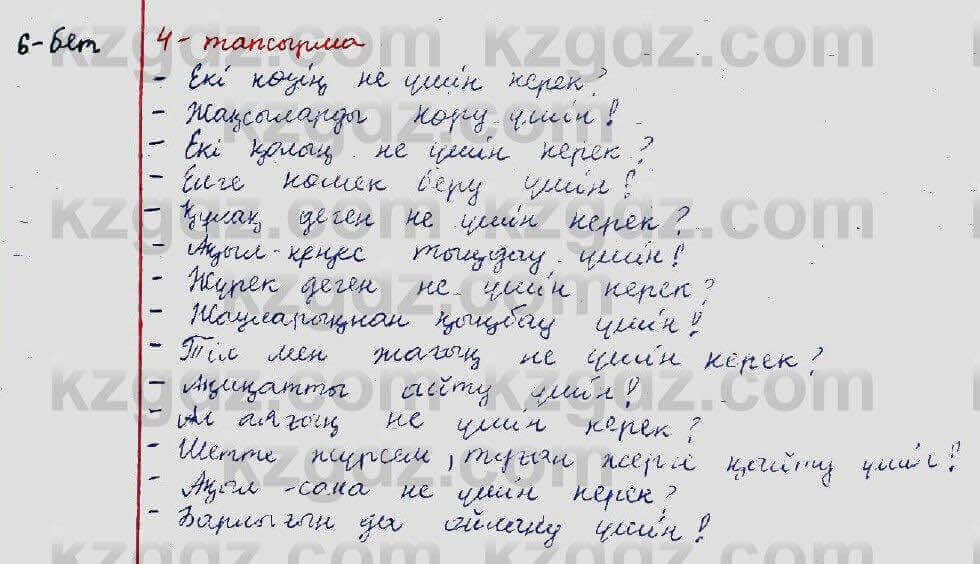 6-бет 4-тапсырма
- Екі көзің не үшін керек?
- Жақсыларды көру үшін!
- Екі қолың не үшін керек?
- Елге көмек беру үшін!
- Құлақ деген не үшін керек?
- Ақыл-кеңес тыңдау үшін!
- Жүрек деген не үшін керек?
- қыңбау үшін!
- Тіл мен жағың не үшін керек?
- Ақиқатты айту үшін!
- Ал аяғың не үшін керек?
- Шетте жүрсем, туған жерге қайту үшін!
- Ақыл-сана не үшін керек?
- Барлығын да ойлану үшін!